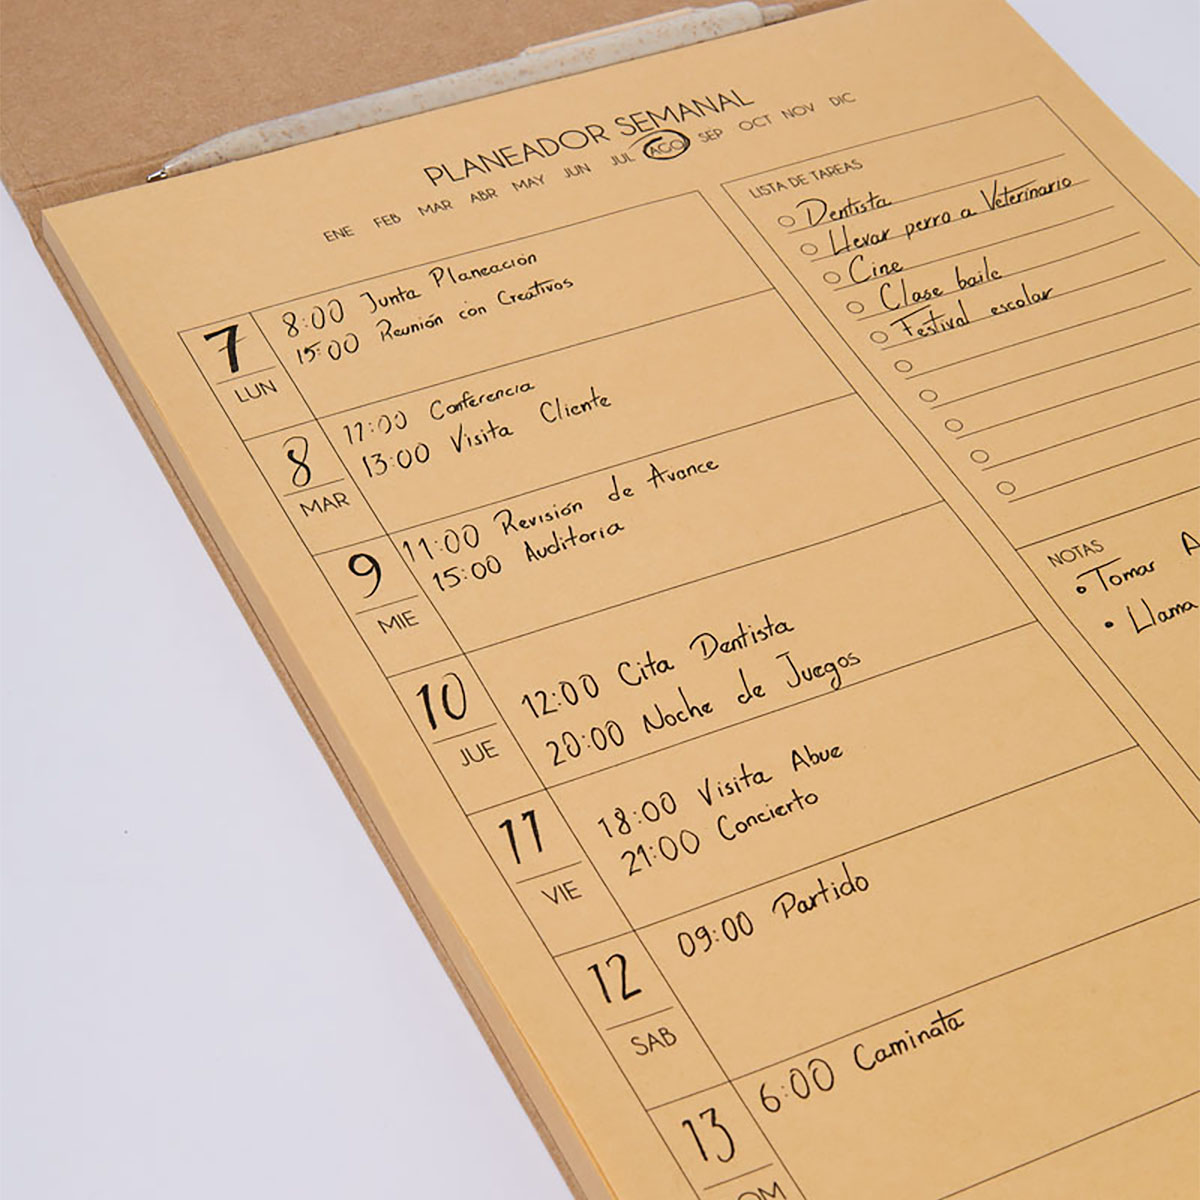 PLANEADOR SEMANAL
ENE FEB MAR ABR MAY JUN JUL AGO SEP OCT NOV DIC
7
LUN
8:00 Junta Planeación
15:00 Reunión con Creativos
8
MAR
11:00 Conferencia
13:00 Visita Cliente
9
MIE
11:00 Revisión de Avance
15:00 Auditoria
10
JUE
12:00 Cita Dentista
20:00 Noche de Juegos
11
VIE
18:00 Visita Abue
21:00 Concierto
12
SAB
09:00 Partido
13
OM
6:00 Caminata
LISTA DE TAREAS
Dentista
Llevar perro a Veterinario
Cine
Clase baile
Festival escolar
NOTAS
• Tomar A
• Llama